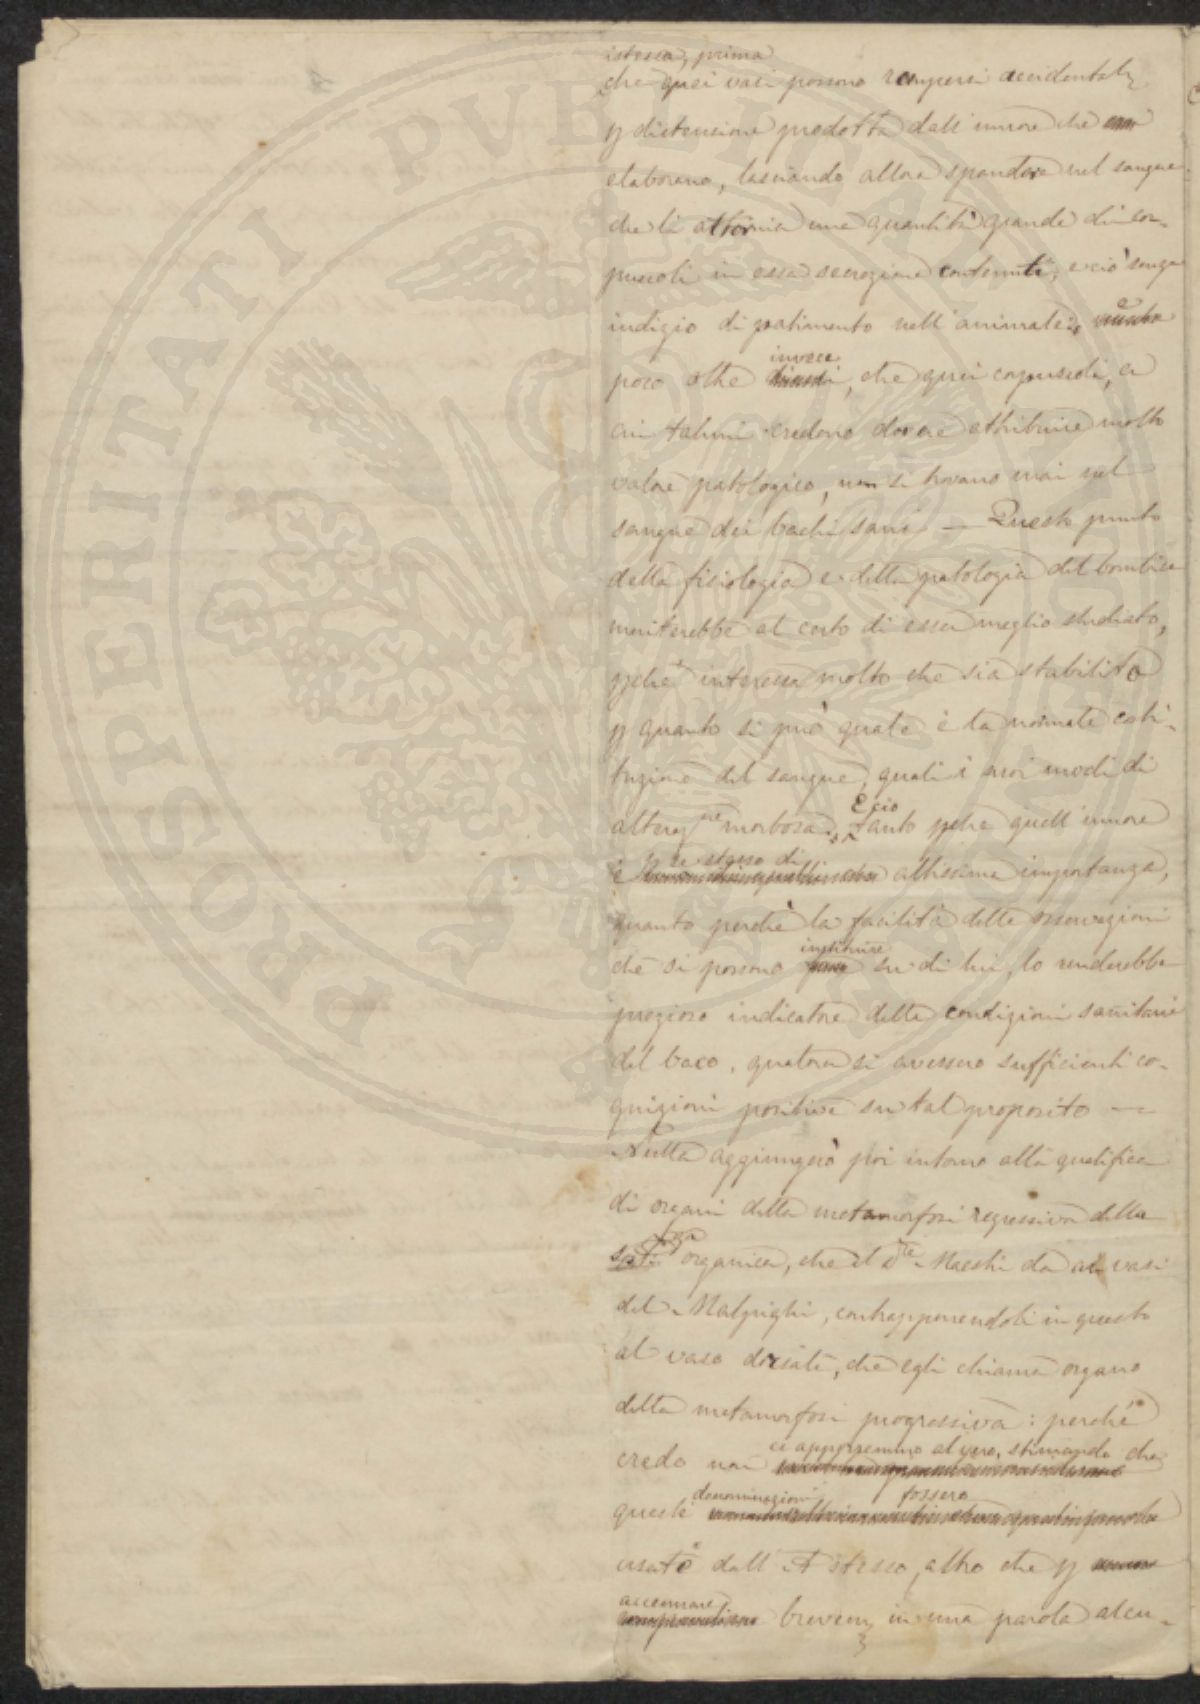 istessa, prima
che quei vasi possono rompersi accidentalm
p distensione prodotta dall'umore che
elaborano, lasciando allora spandere nel sangue
che li attornia una quantità grande di cor-
puscoli in essa secrezione contenuti, e ciò senza
indizio di patimento nell'animale; e
poco oltre invece, che quei corpuscoli, a
cui taluni credono dovere attribuire molto
valore patologico, non si trovano mai nel
sangue dei bachi sani — Questo punto
della fisiologia e della patologia del bombice
meriterebbe al certo di esser meglio studiato,
pchè interessa molto che sia stabilito
p quanto si può quale è la normale costi-
tuzione del sangue, quali i suoi modi di
alteraz.ne morbosa. E ciò tanto pchè quell'umore
è p se stesso di altissima importanza,
quanto perchè la facilità delle osservazioni
che si possono instituire su di lui, lo renderebbe
prezioso indicatore delle condizioni sanitarie
del baco, qualora si avessero sufficienti co-
gnizioni positive su tal proposito —
Nulla aggiungerò poi intorno alla qualifica
di organi della metamorfosi regressiva della
organica, che il d.re Maestri da ai vasi
del Malpighi, contrapponendoli in questo
al vaso dorsale, che egli chiama organo
della metamorfosi progressiva: perchè
credo non ci apporremmo al vero, stimando che
queste denominazioni fossero
usate dall'A stesso, altro che p
accennare brevem in una parola alcu-
PROSPERITATI PUBLICAE